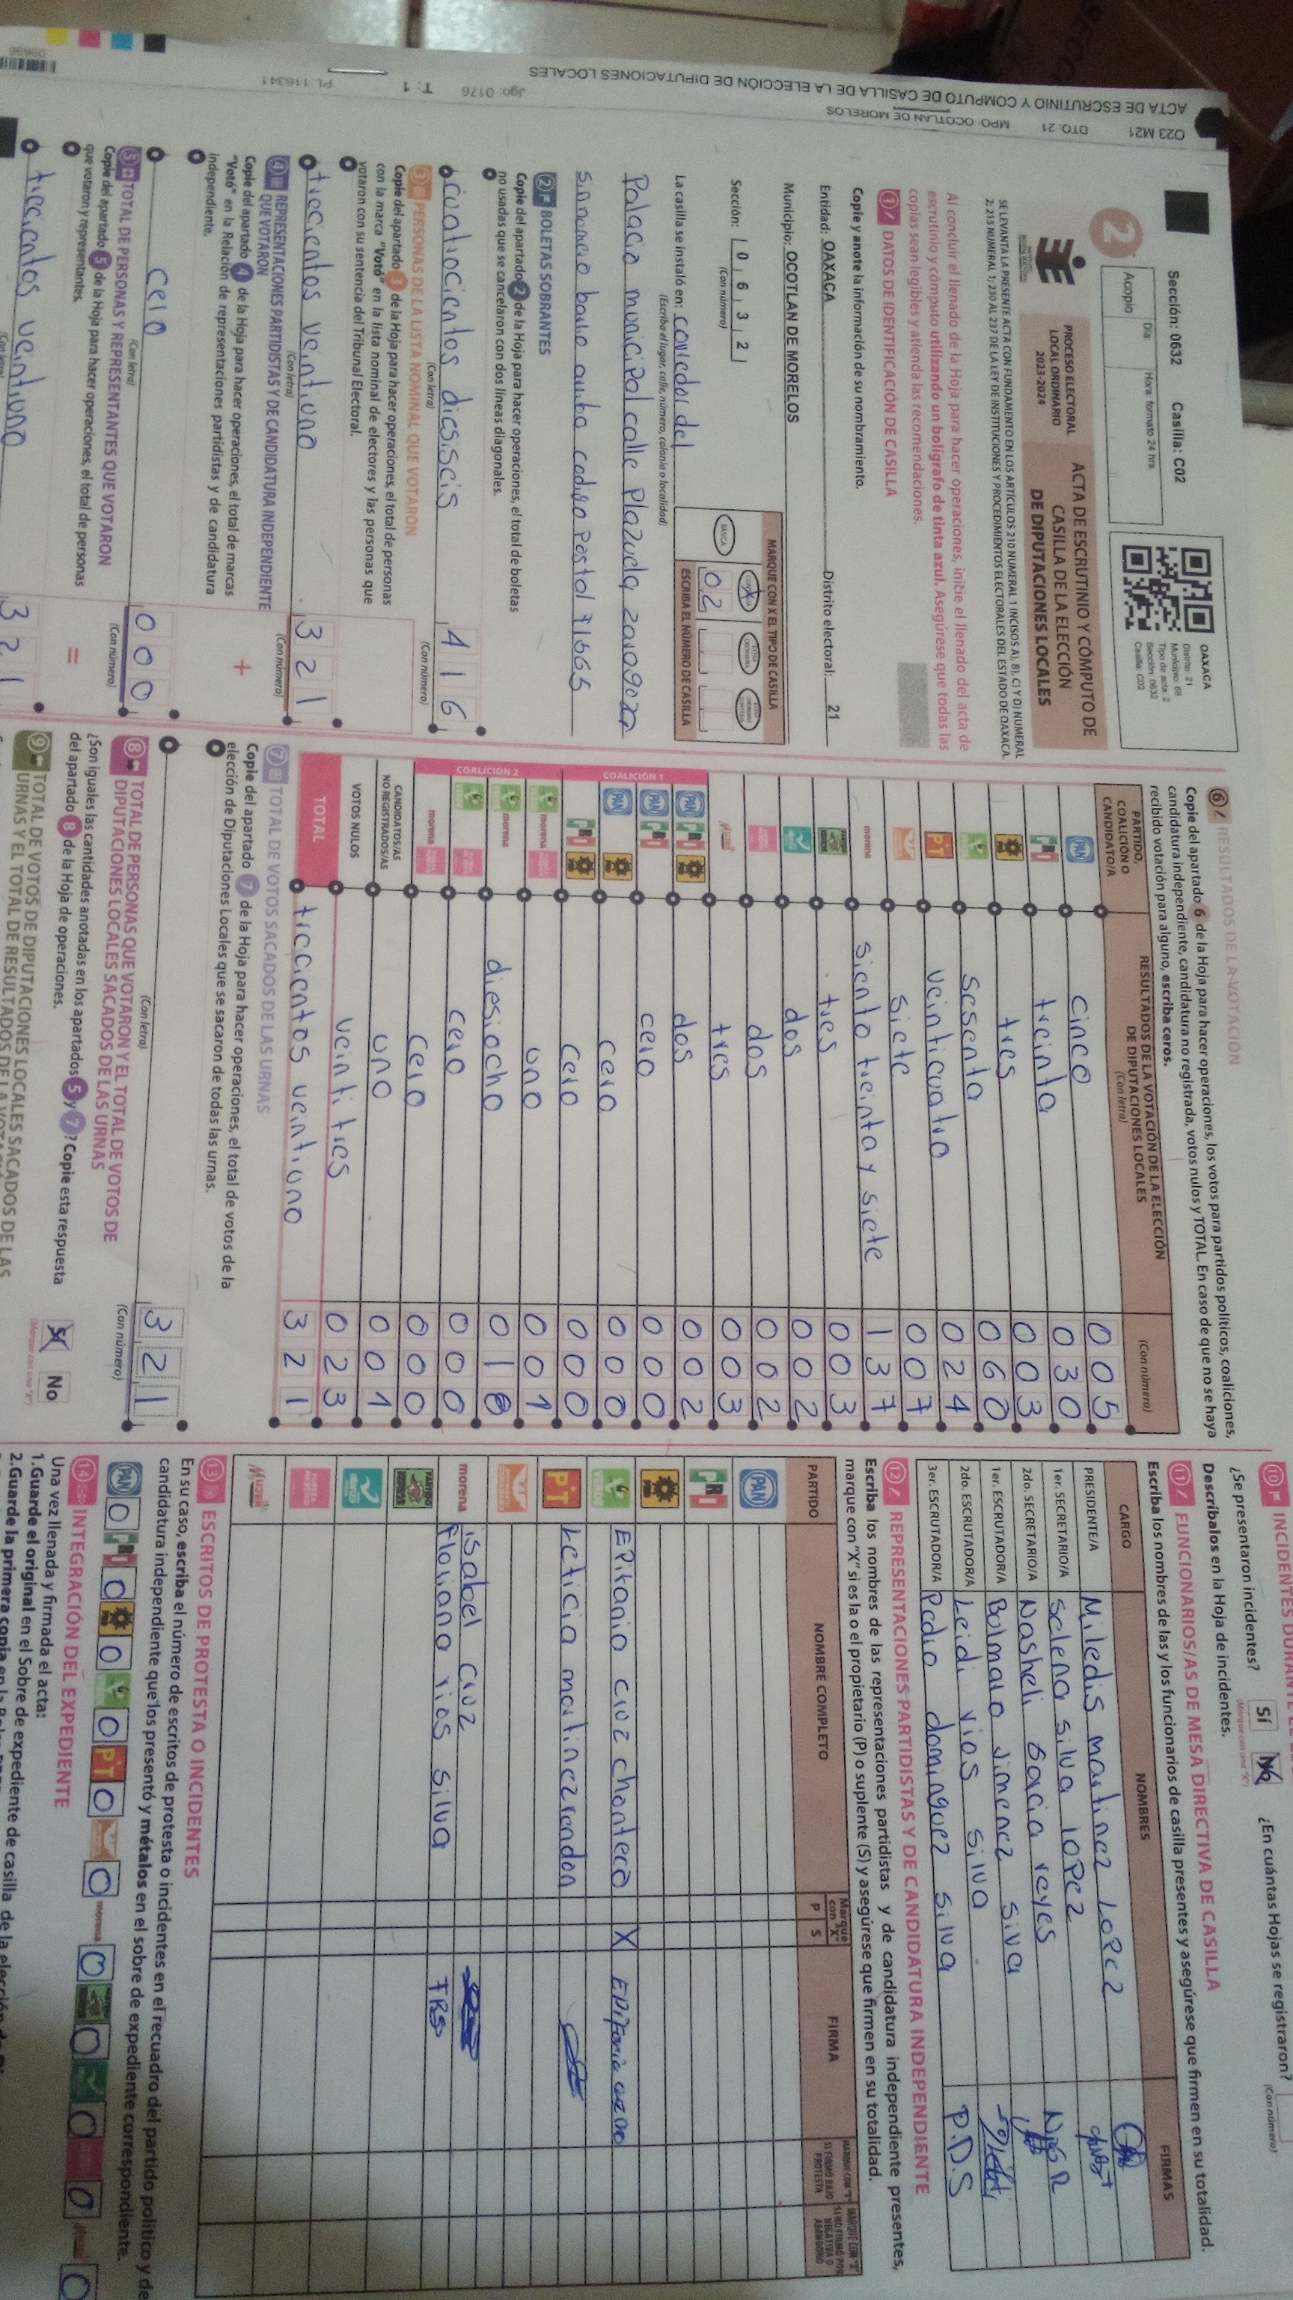 ACTA DE ESCRUTINIO Y CÓMPUTO DE CASILLA DE LA ELECCIÓN DE DIPUTACIONES LOCALES
O23 M21 DTO: 21 MPO: OCOTLAN DE MORELOS Jgo: 0176 T: 1 PL: 116341
Sección: 0632 Casilla: C02
Día: Hora: formato 24 hrs.
Acopio
2
OAXACA
Distrito: 21
Municipio: 68
Tipo de acta: 2
Sección: 0632
Casilla: C02
PROCESO ELECTORAL
LOCAL ORDINARIO
2023-2024
ACTA DE ESCRUTINIO Y CÓMPUTO DE
CASILLA DE LA ELECCIÓN
DE DIPUTACIONES LOCALES
SE LEVANTA LA PRESENTE ACTA CON FUNDAMENTO EN LOS ARTÍCULOS 210 NUMERAL 1 INCISOS A), B), C) Y D) NUMERAL
2; 215 NUMERAL 1; 230 AL 237 DE LA LEY DE INSTITUCIONES Y PROCEDIMIENTOS ELECTORALES DEL ESTADO DE OAXACA.
Al concluir el llenado de la Hoja para hacer operaciones, inicie el llenado del acta de
escrutinio y cómputo utilizando un bolígrafo de tinta azul. Asegúrese que todas las
copias sean legibles y atienda las recomendaciones.
1 DATOS DE IDENTIFICACIÓN DE CASILLA
Copie y anote la información de su nombramiento.
Entidad: OAXACA Distrito electoral: 21
Municipio: OCOTLAN DE MORELOS
Sección: 0 6 3 2
(Con número)
MARQUE CON X EL TIPO DE CASILLA
BÁSICA
ESCRIBA EL NÚMERO DE CASILLA
02
La casilla se instaló en: corredor del
(Escriba el lugar, calle, número, colonia o localidad)
Palacio municipal calle Plazuela zaragoza
sinnumero barrio quinto codigo Postal 71665
2 BOLETAS SOBRANTES
Copie del apartado 2 de la Hoja para hacer operaciones, el total de boletas
no usadas que se cancelaron con dos líneas diagonales.
cuatrocientos diesiseis 4 1 6
(Con letra) (Con número)
3 PERSONAS DE LA LISTA NOMINAL QUE VOTARON
Copie del apartado 3 de la Hoja para hacer operaciones, el total de personas
con la marca "Votó" en la lista nominal de electores y las personas que
votaron con su sentencia del Tribunal Electoral.
trecientos veintiuno 3 2 1
(Con letra) (Con número)
4 REPRESENTACIONES PARTIDISTAS Y DE CANDIDATURA INDEPENDIENTE
QUE VOTARON
Copie del apartado 4 de la Hoja para hacer operaciones, el total de marcas
"Votó" en la Relación de representaciones partidistas y de candidatura
independiente.
+
cero 0 0 0
(Con letra) (Con número)
5 TOTAL DE PERSONAS Y REPRESENTANTES QUE VOTARON
Copie del apartado 5 de la Hoja para hacer operaciones, el total de personas
que votaron y representantes.
=
trecientos veintiuno 3 2 1
(Con letra)
6 RESULTADOS DE LA VOTACIÓN
Copie del apartado 6 de la Hoja para hacer operaciones, los votos para partidos políticos, coaliciones,
candidatura independiente, candidatura no registrada, votos nulos y TOTAL. En caso de que no se haya
recibido votación para alguno, escriba ceros.
PARTIDO, COALICIÓN O CANDIDATO/A
RESULTADOS DE LA VOTACIÓN DE LA ELECCIÓN DE DIPUTACIONES LOCALES
(Con letra) (Con número)
PAN cinco 0 0 5
PRI treinta 0 3 0
tres 0 0 3
sesenta 0 6 0
PT veinticuatro 0 2 4
siete 0 0 7
morena siento treinta y siete 1 3 7
tres 0 0 3
dos 0 0 2
dos 0 0 2
tres 0 0 3
COALICIÓN 1
PAN PRI dos 0 0 2
PAN PRI cero 0 0 0
PAN cero 0 0 0
PRI cero 0 0 0
COALICIÓN 2
morena uno 0 0 1
morena diesiocho 0 1 8
cero 0 0 0
morena cero 0 0 0
CANDIDATOS/AS NO REGISTRADOS/AS uno 0 0 1
VOTOS NULOS veintitres 0 2 3
TOTAL trecientos veintiuno 3 2 1
7 TOTAL DE VOTOS SACADOS DE LAS URNAS
Copie del apartado 7 de la Hoja para hacer operaciones, el total de votos de la
elección de Diputaciones Locales que se sacaron de todas las urnas.
3 2 1
(Con letra) (Con número)
8 TOTAL DE PERSONAS QUE VOTARON Y EL TOTAL DE VOTOS DE
DIPUTACIONES LOCALES SACADOS DE LAS URNAS
¿Son iguales las cantidades anotadas en los apartados 5 y 7? Copie esta respuesta
del apartado 8 de la Hoja de operaciones.
Sí No
9 TOTAL DE VOTOS DE DIPUTACIONES LOCALES SACADOS DE LAS
URNAS Y EL TOTAL DE RESULTADOS DE LA VOTACIÓN
10 INCIDENTES
¿Se presentaron incidentes? Sí No ¿En cuántas Hojas se registraron?
(Con número)
Descríbalos en la Hoja de incidentes.
11 FUNCIONARIOS/AS DE MESA DIRECTIVA DE CASILLA
Escriba los nombres de las y los funcionarios de casilla presentes y asegúrese que firmen en su totalidad.
CARGO NOMBRES FIRMAS
PRESIDENTE/A Miledis martinez Lopez
1er. SECRETARIO/A Selena silva lopez
2do. SECRETARIO/A Nasheli Garcia reyes
1er. ESCRUTADOR/A Bulmaro Jimenez silva
2do. ESCRUTADOR/A Leidi rios silva
3er. ESCRUTADOR/A Pedro dominguez silva P.D.S
12 REPRESENTACIONES PARTIDISTAS Y DE CANDIDATURA INDEPENDIENTE
Escriba los nombres de las representaciones partidistas y de candidatura independiente presentes,
marque con "X" si es la o el propietario (P) o suplente (S) y asegúrese que firmen en su totalidad.
PARTIDO NOMBRE COMPLETO Marque con "X" P S FIRMA
PAN
PRI
Epifanio cruz chontero X
PT Leticia martinez rendon
morena isabel cruz
floriano rios silva FRS
MUJER
13 ESCRITOS DE PROTESTA O INCIDENTES
En su caso, escriba el número de escritos de protesta o incidentes en el recuadro del partido político y de
candidatura independiente que los presentó y métalos en el sobre de expediente de casilla correspondiente.
PAN 0 PRI 0 0 0 PT 0 0 morena 0 0 0 0 0
14 INTEGRACIÓN DEL EXPEDIENTE
Una vez llenada y firmada el acta:
1.Guarde el original en el Sobre de expediente de casilla de la elección
2.Guarde la primera copia en la